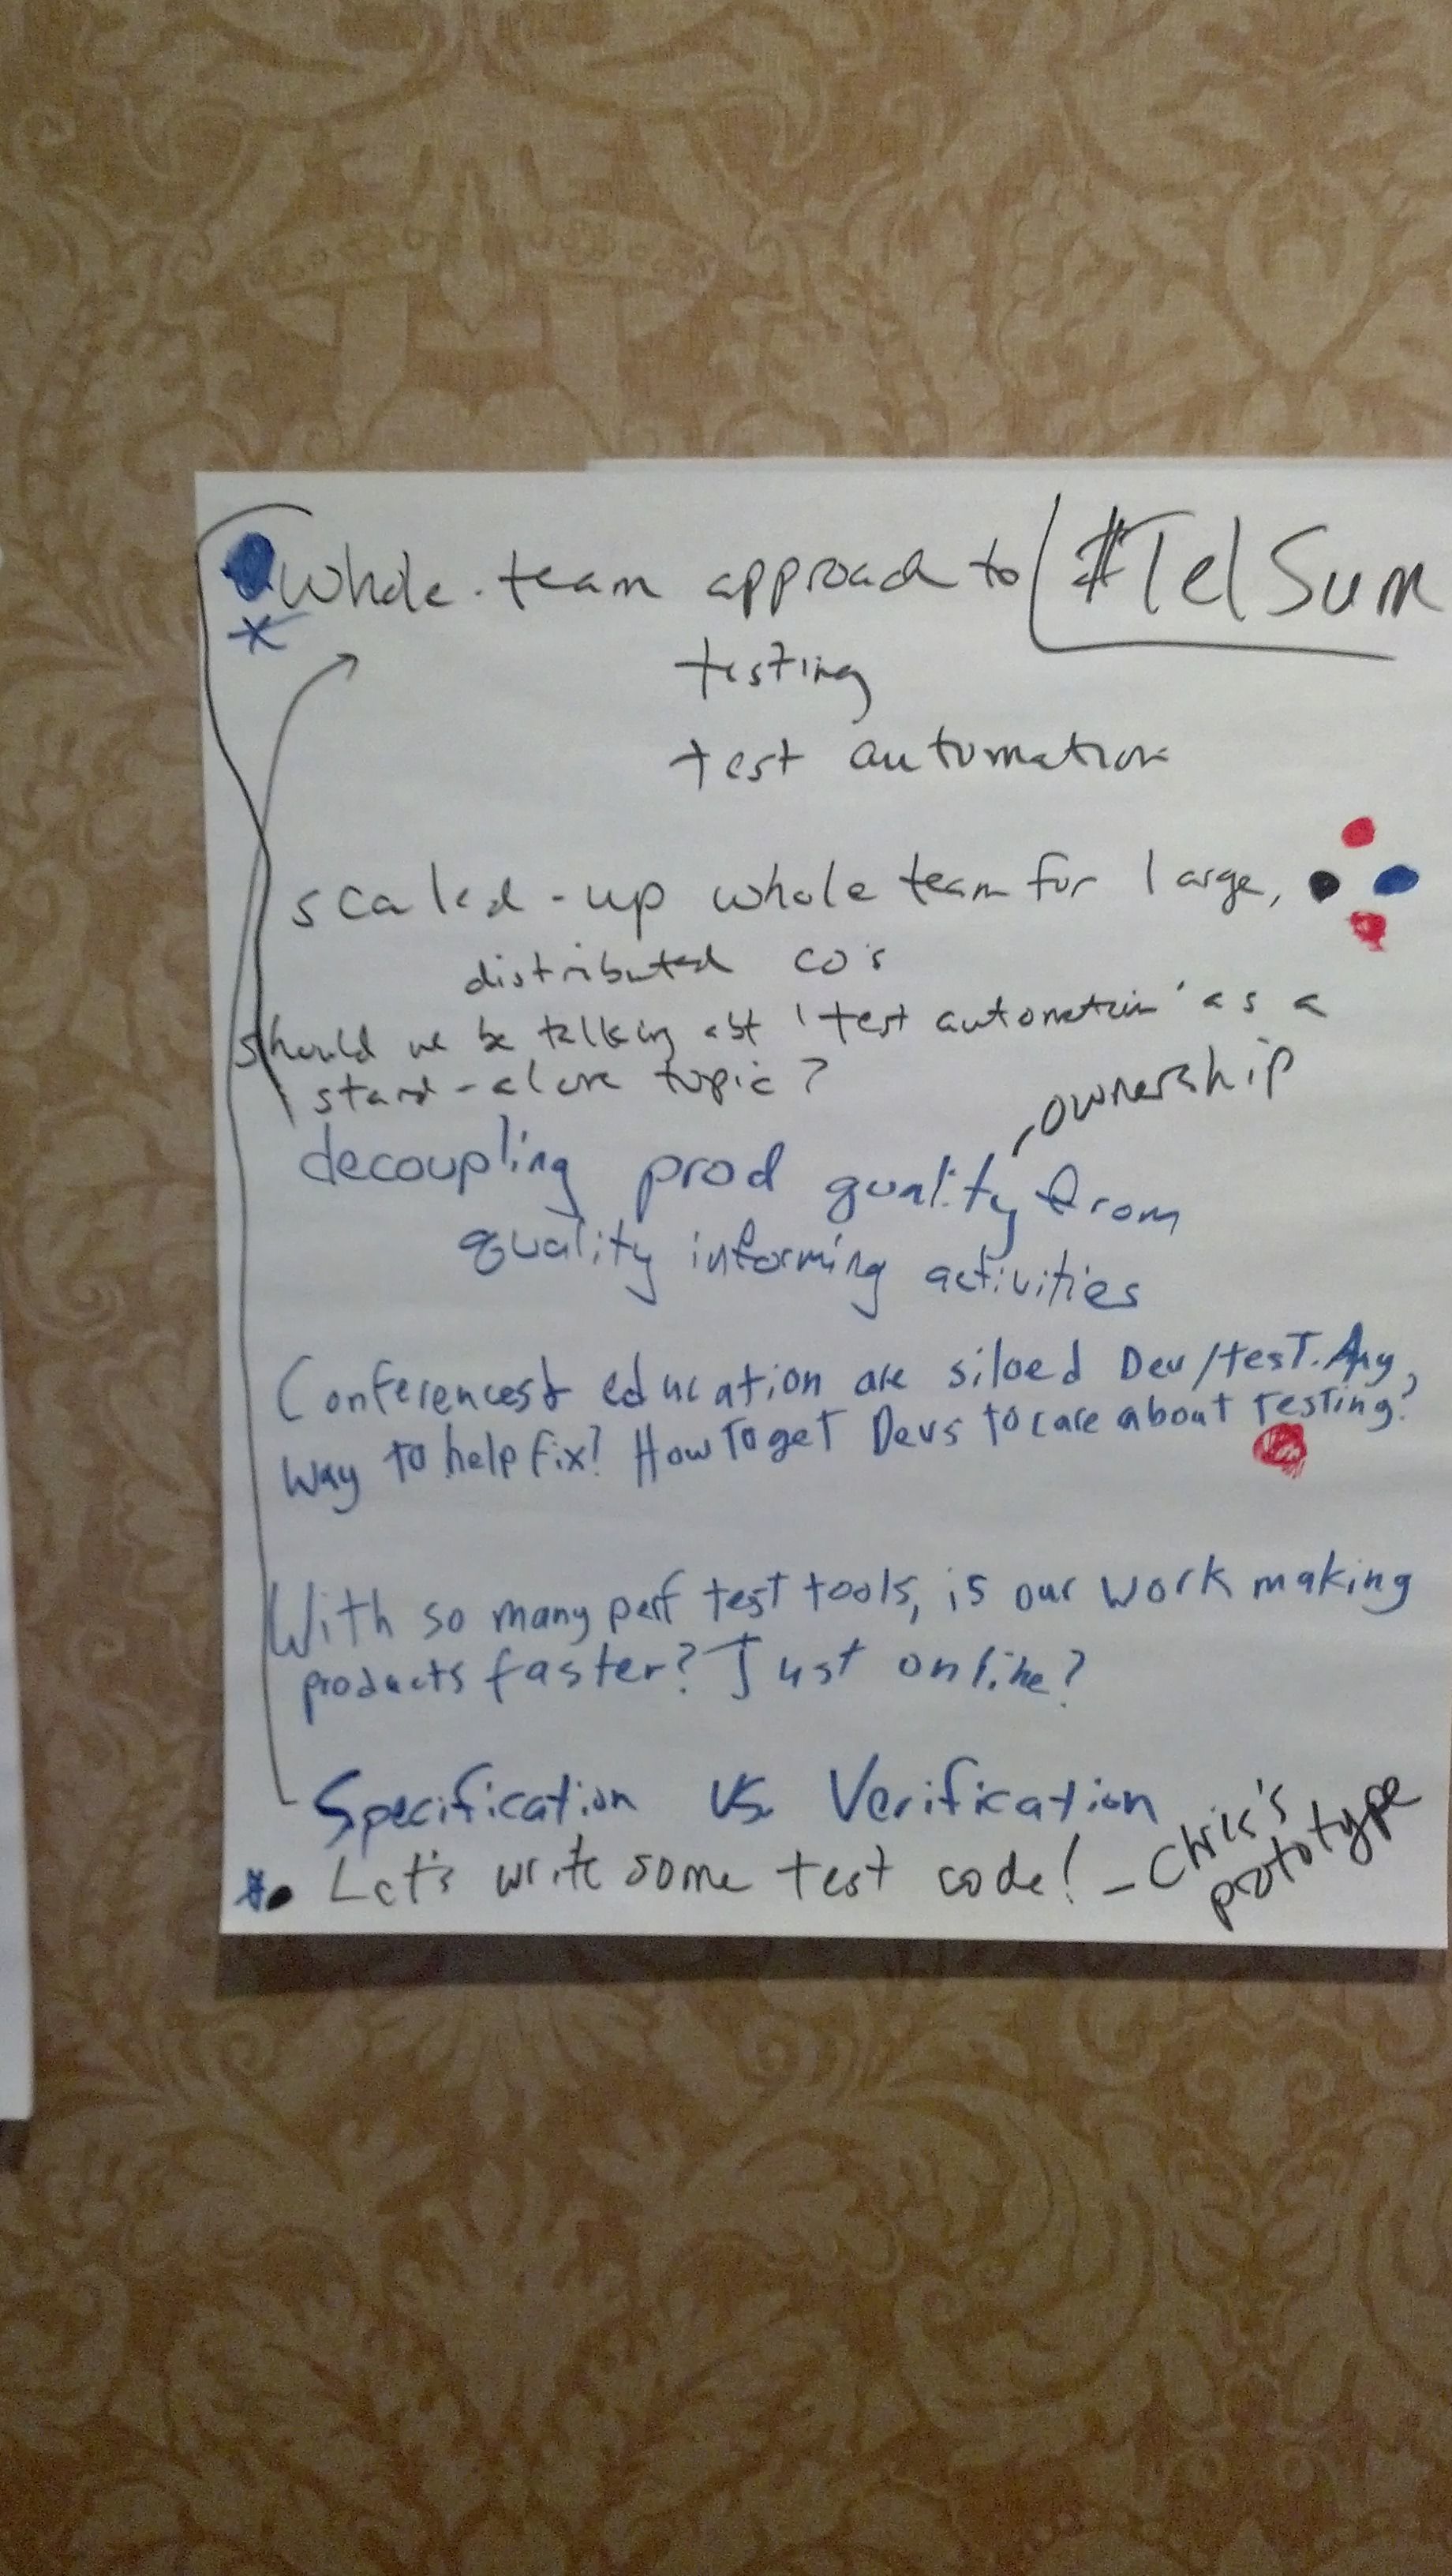 Whole-team approach to
#TelSum
testing
test automation
scaled-up whole team for large,
distributed co's
should we be talking abt 'test automation' as a
stand-alone topic?
ownership
decoupling prod quality from
quality informing activities
Conferences & education are siloed Dev/test. Any
way to help fix? How To get Devs to care about Testing?
With so many perf test tools, is our work making
products faster? Just online?
Specification vs. Verification
Let's write some test code! - Chris's
prototype